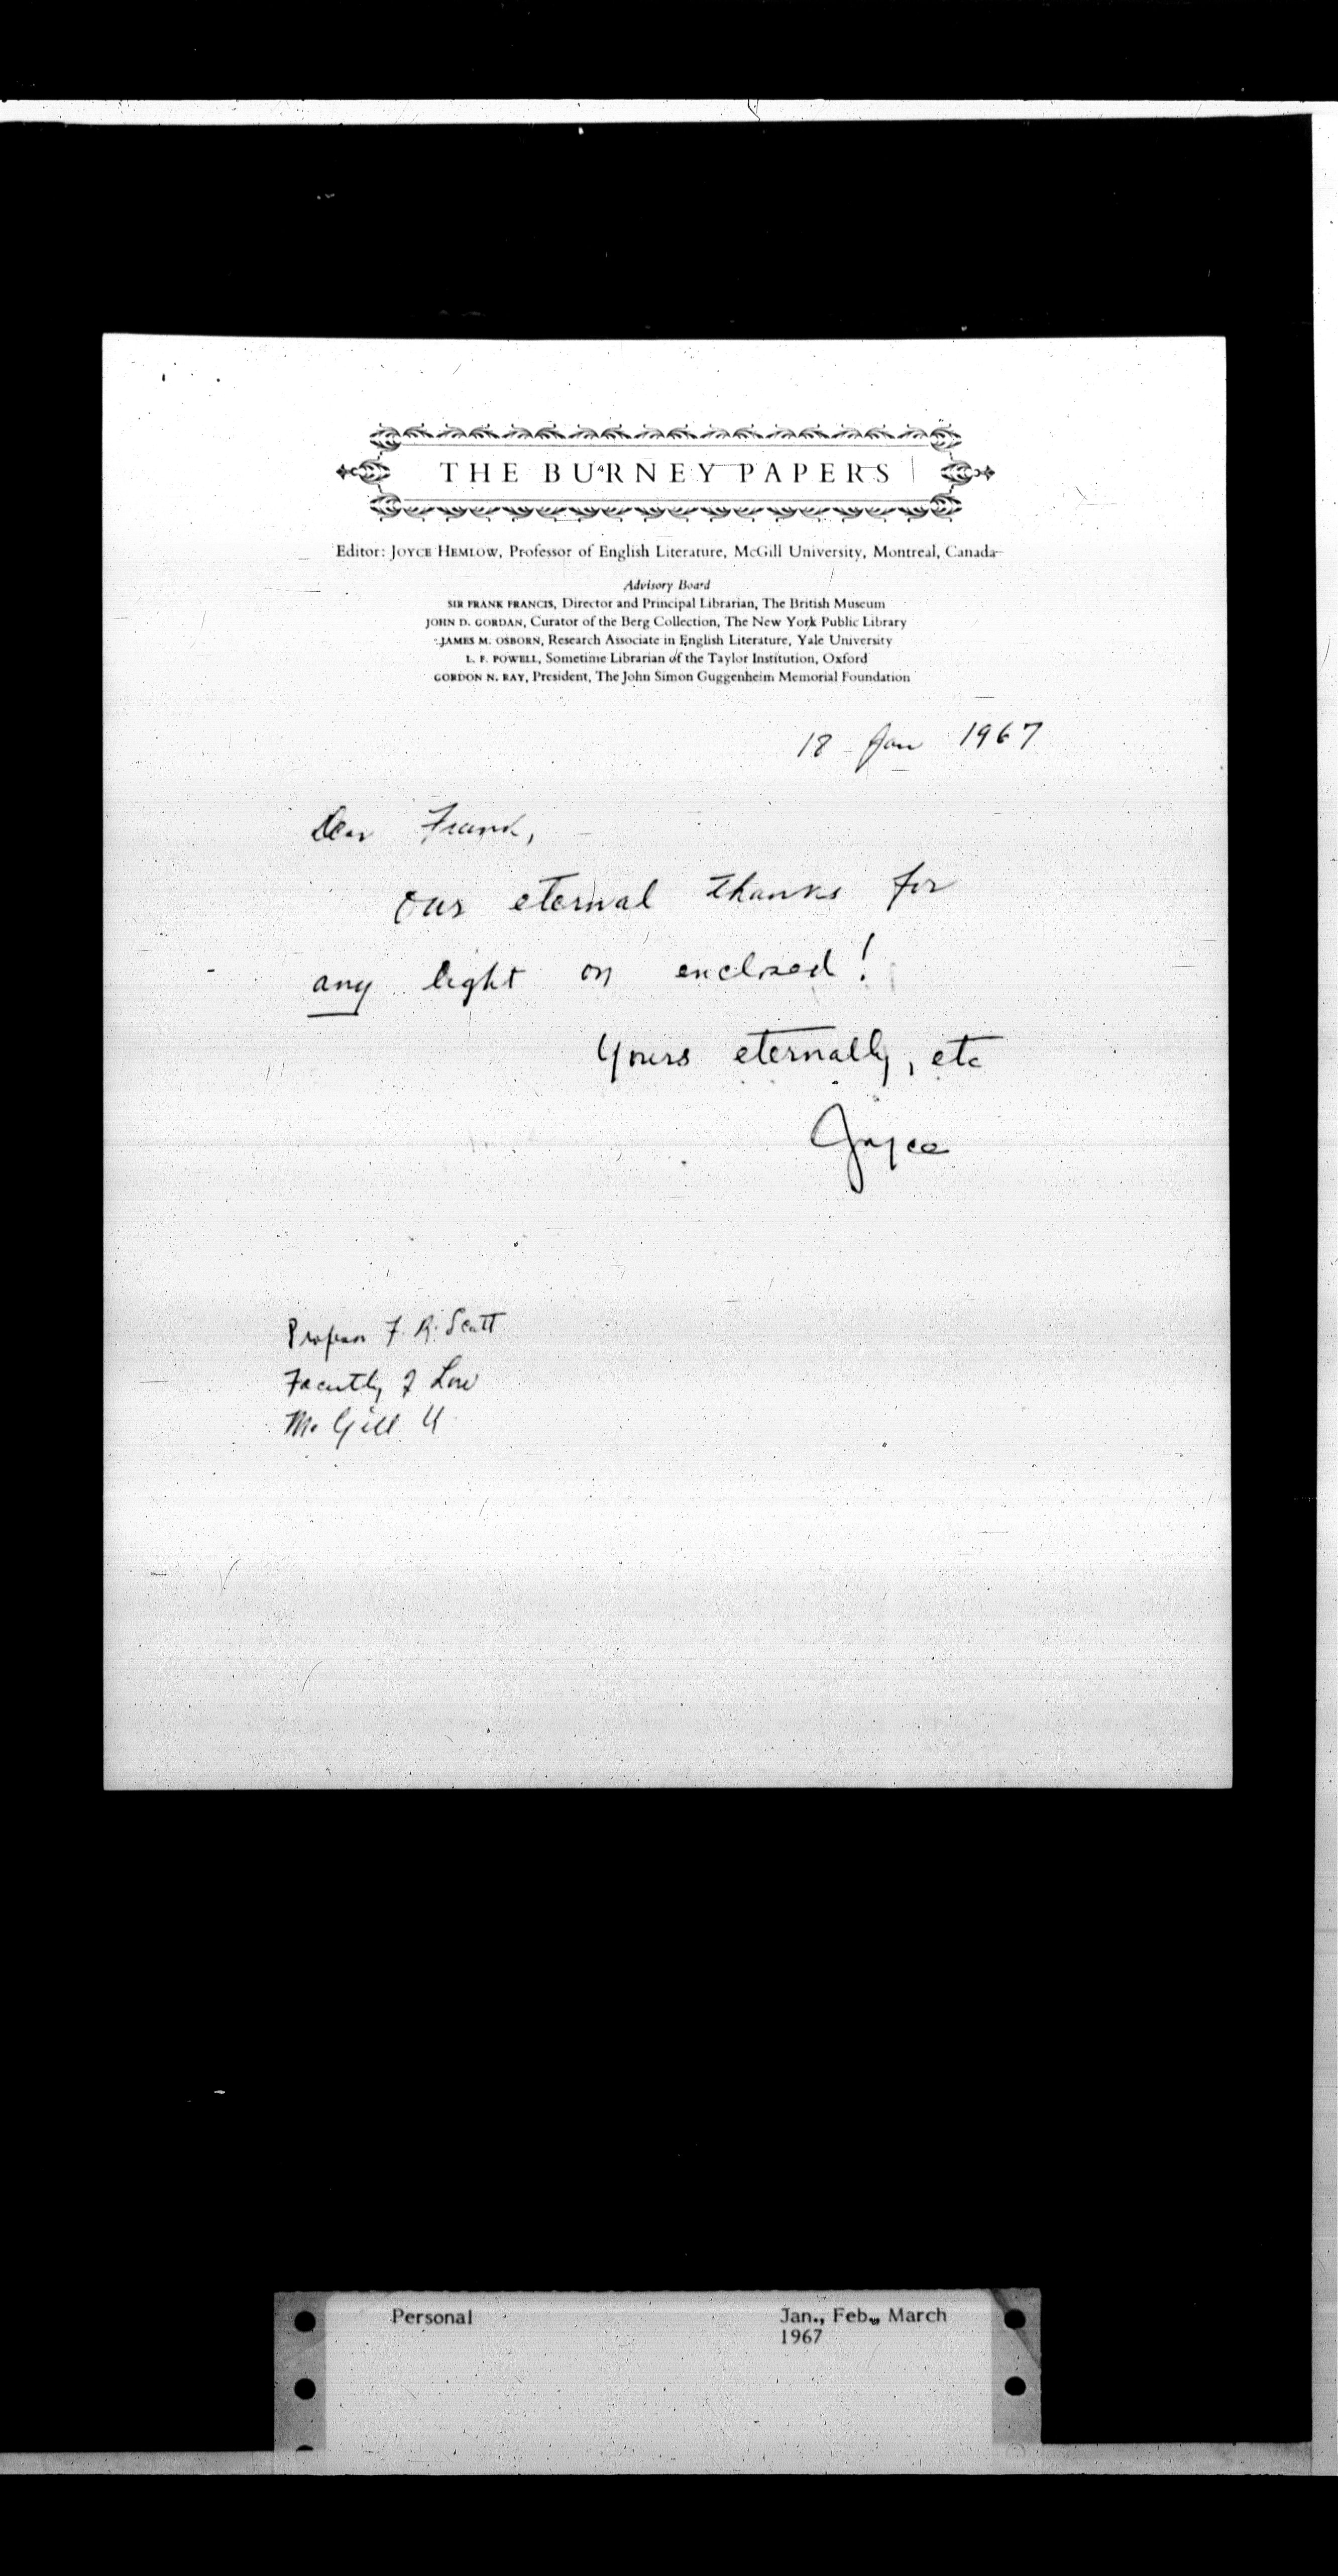 THE BURNEY PAPERS
Editor: JOYCE HEMLOW, Professor of English Literature, McGill University, Montreal, Canada
Advisory Board
SIR FRANK FRANCIS, Director and Principal Librarian, The British Museum
JOHN D. GORDAN, Curator of the Berg Collection, The New York Public Library
JAMES M. OSBORN, Research Associate in English Literature, Yale University
L. F. POWELL, Sometime Librarian of the Taylor Institution, Oxford
GORDON N. RAY, President, The John Simon Guggenheim Memorial Foundation
18 Jan 1967
Dear Frank,
Our eternal thanks for
any light on enclosed!
Yours eternally, etc
Joyce
Professor F. R. Scott
Faculty of Law
McGill U
Personal
Jan., Feb., March
1967